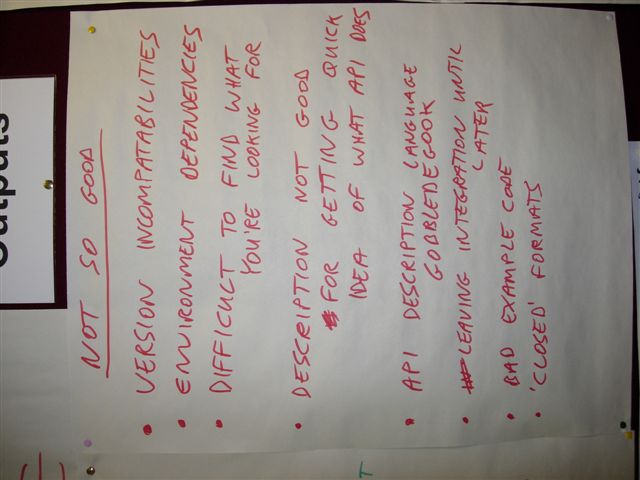 Outputs
NOT SO GOOD
• VERSION INCOMPATABILITIES
• ENVIRONMENT DEPENDENCIES
• DIFFICULT TO FIND WHAT
YOU'RE LOOKING FOR
• DESCRIPTION NOT GOOD
FOR GETTING QUICK
IDEA OF WHAT API DOES
• API DESCRIPTION LANGUAGE
GOBBLEDEGOOK
• LEAVING INTEGRATION UNTIL
LATER
• BAD EXAMPLE CODE
• 'CLOSED' FORMATS